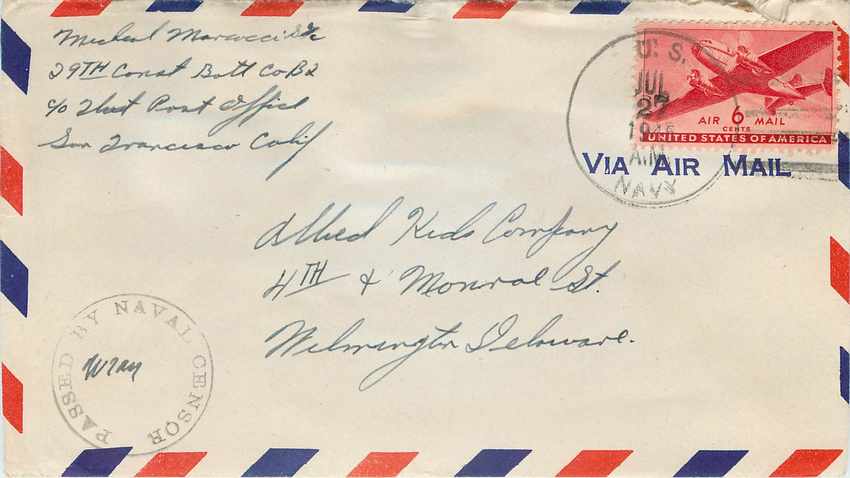 Micheal Marcucci S2/c
29TH Const Batt Co B2
c/o Fleet Post Office
San Francisco Calif
U. S.
JUL
27
A.M.
NAVY
AIR 6 MAIL
CENTS
UNITED STATES OF AMERICA
VIA AIR MAIL
Allied Kids Company
4TH & Monroe St.
Wilmington Delaware.
PASSED BY NAVAL CENSOR
Wray